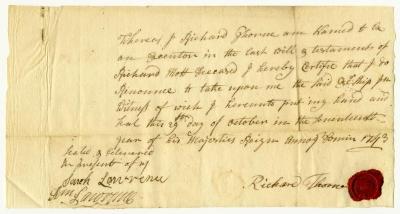 Whereas J Richard Thorne am Named to be
an Executor in the last will & testament of
Richard Mott Deceased J hereby Certifie that J do
Renounce to take upon me the said
Witness of wich J hereunto put my hand and
Seal this 29th day of october in the Seventeenth
year of his Majesties Reign Annoq Domini 1743
Seald & delivered
in present of us
Sarah Lawrence
Lawrence
Richard Thorne